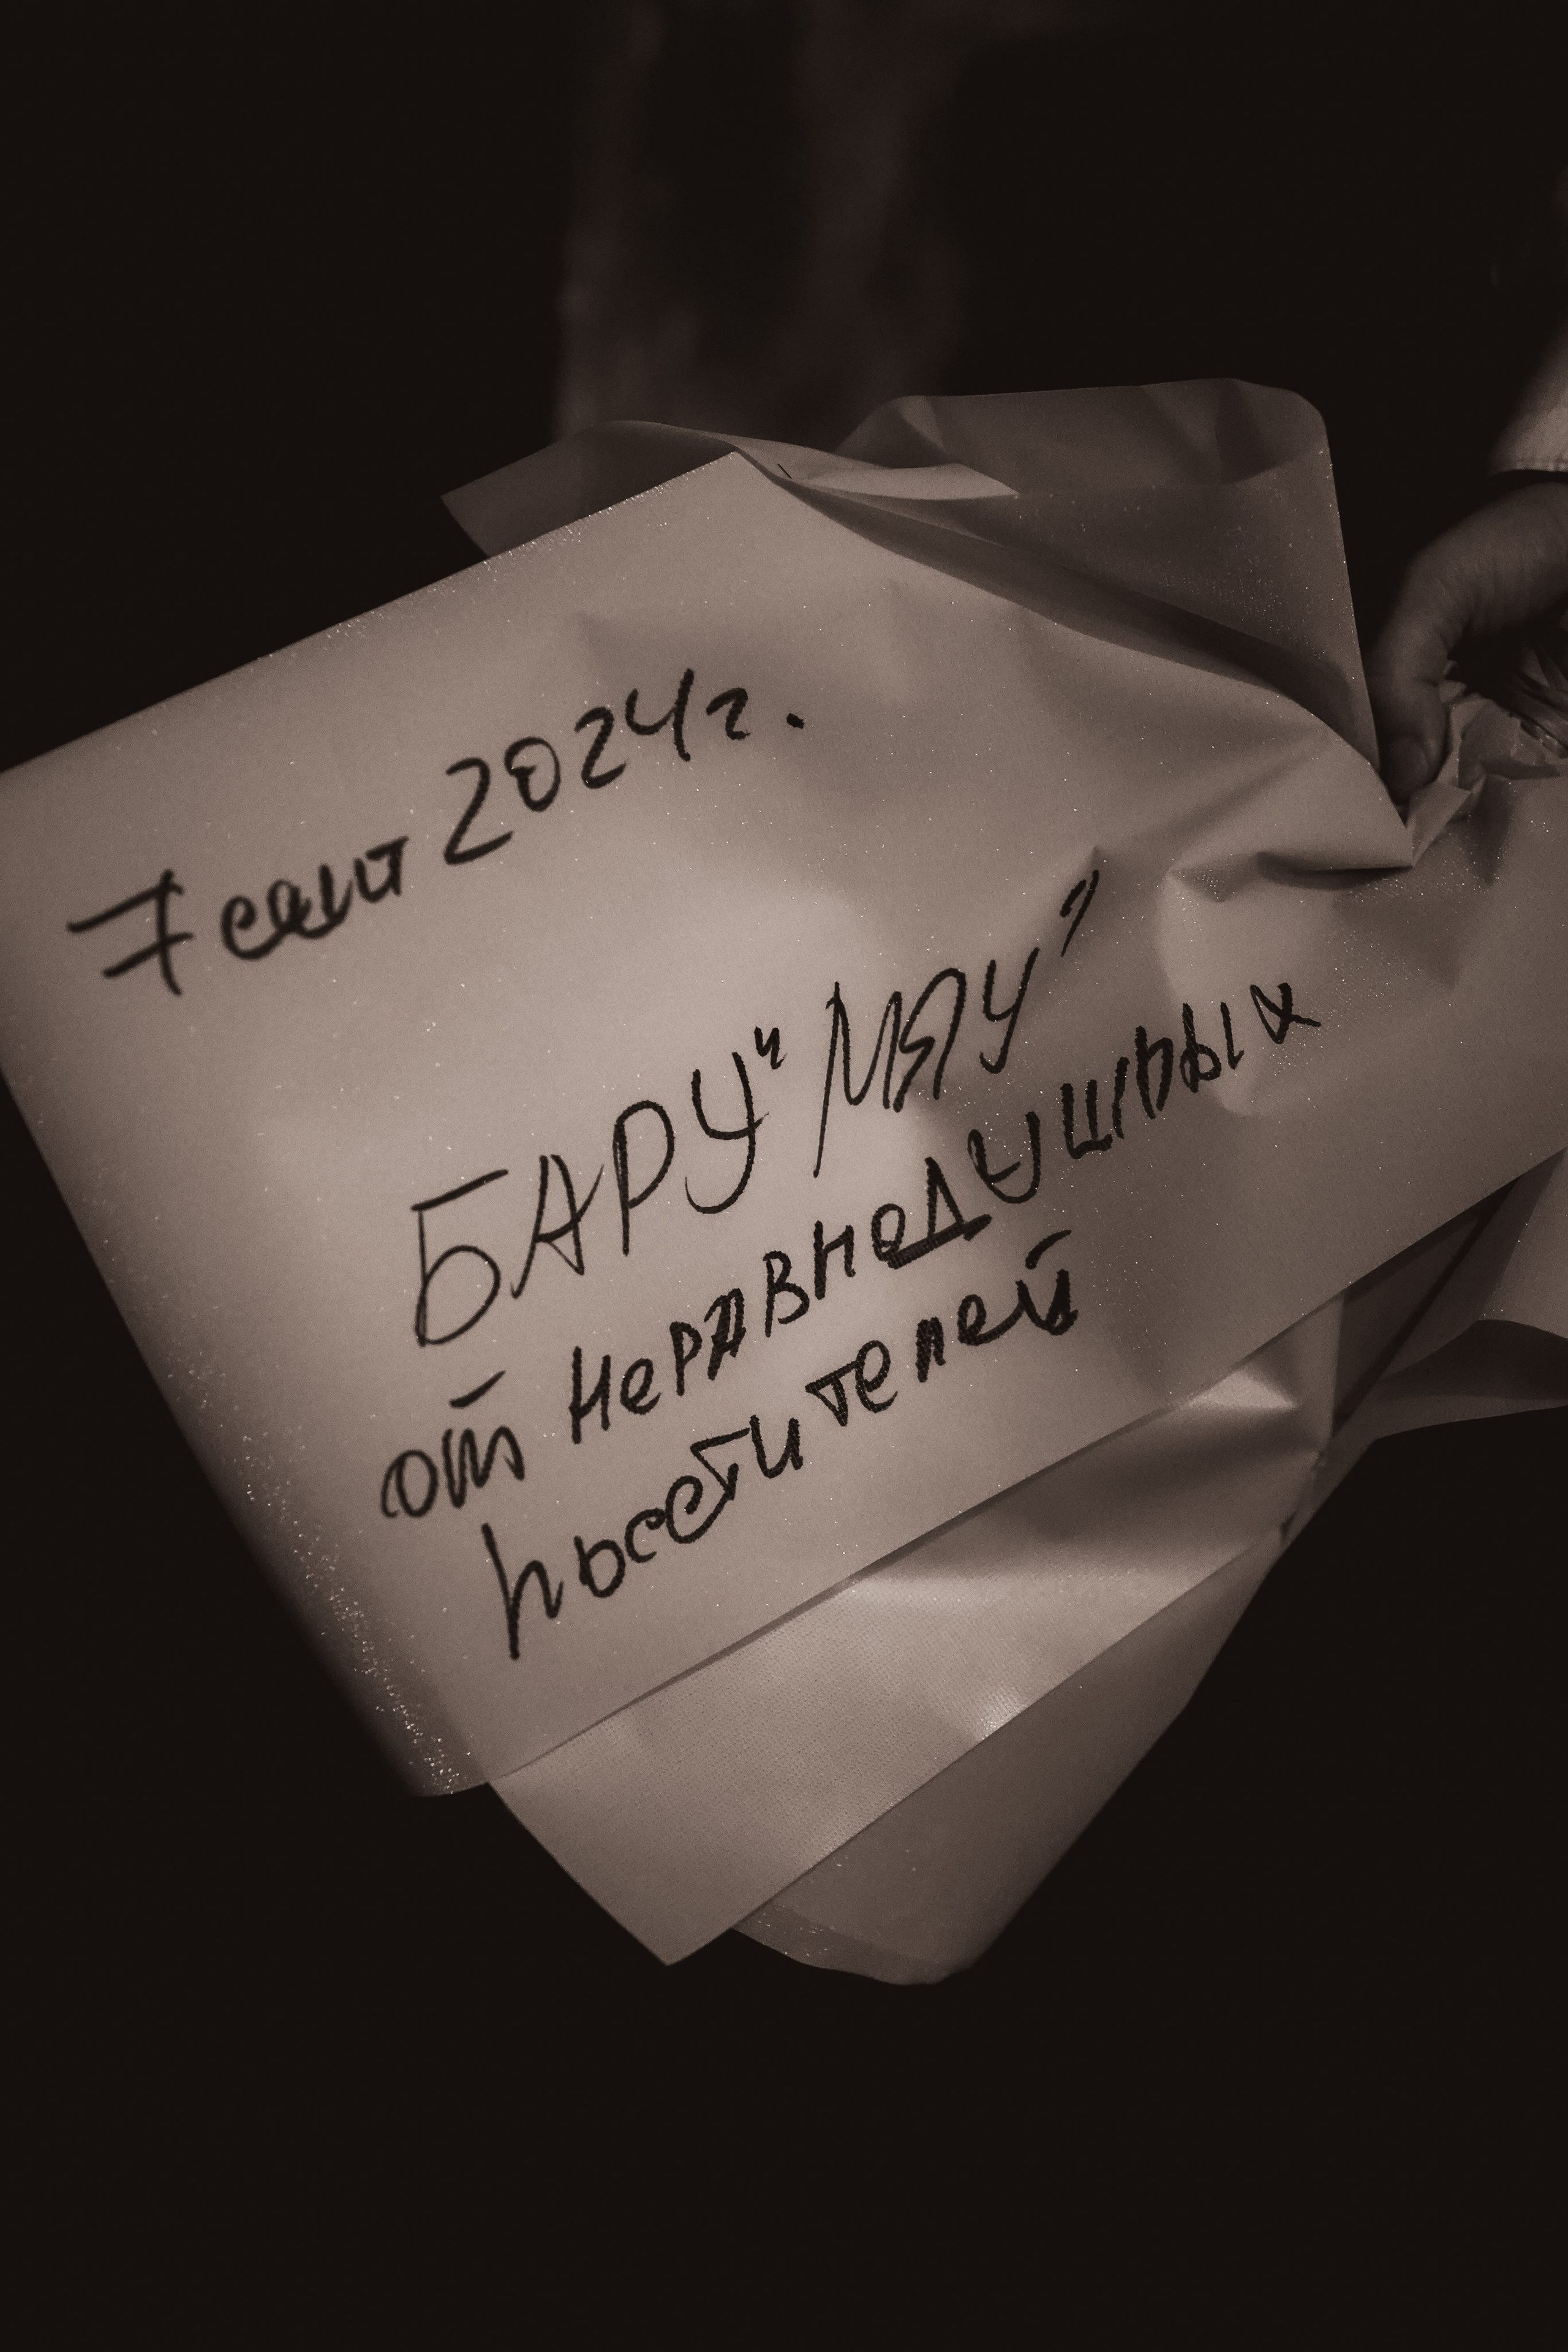 7 сент 2024г.
БАРУ "МЯУ"
от неравнодушных
посетителей